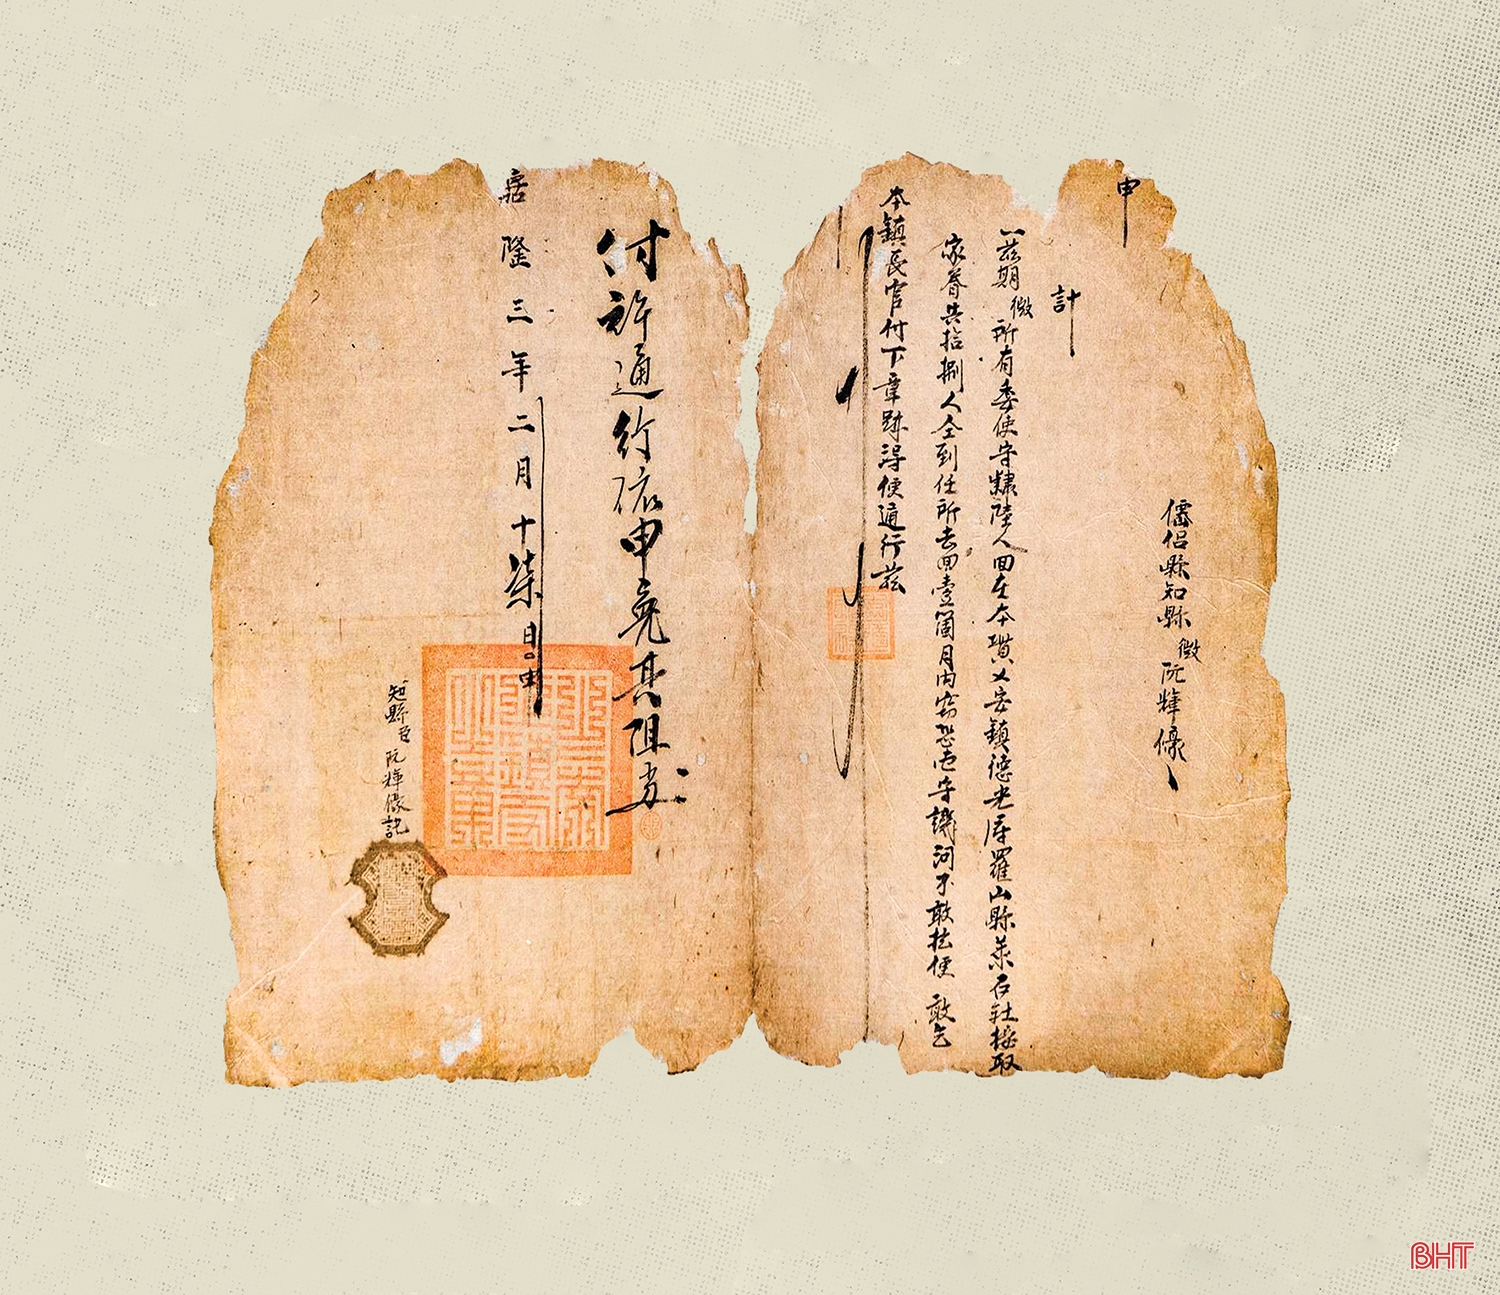 申
僊侶縣知縣微阮輝𠐤
計
一茲期微所有委使守隸陸人回在本貫乂安鎮德光府羅山縣萊石社接取
家眷共拾捌人仝到任所去回壹箇月内窃恐屯守譏河不敢拡便 敢乞
本鎮長官付下章跡得便通行茲
付許通行依申毫其阻当
嘉隆三年二月十柒日申
知縣臣阮輝𠐤記
BHT